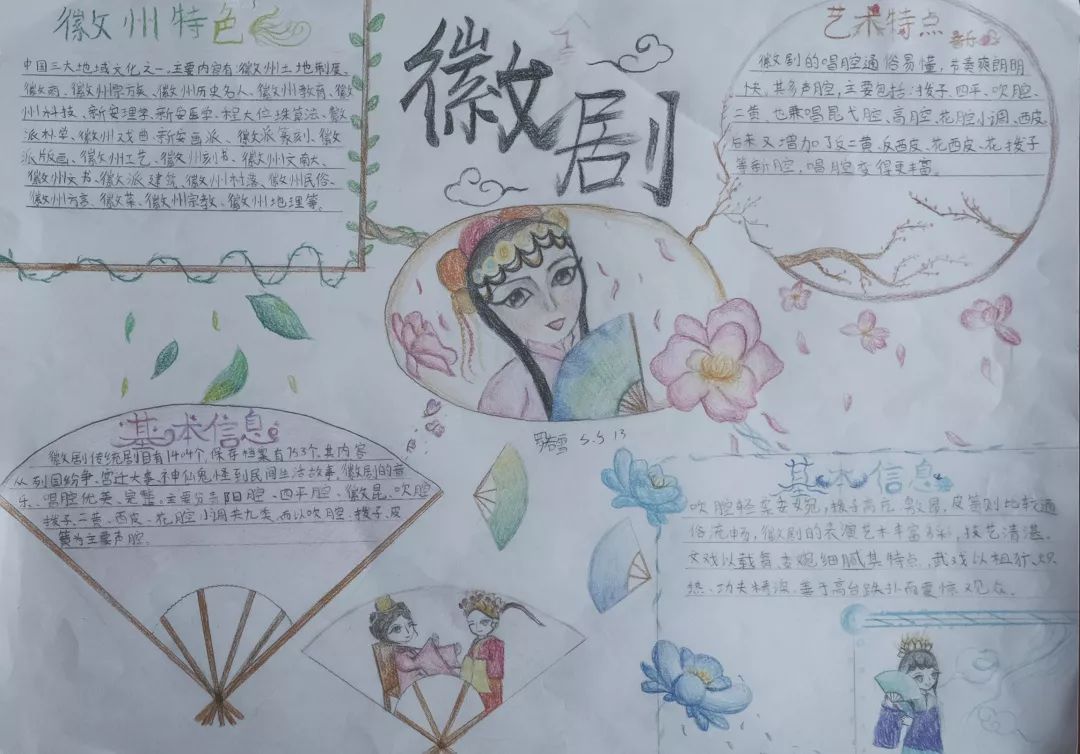 徽州特色
中国三大地域文化之一,主要内容有:徽州土地制度、
徽商、徽州宗族、徽州历史名人、徽州教育、徽
州科技、新安理学、新安医学、程大位珠算法、徽
派朴学、徽州戏曲、新安画派、徽派篆刻、徽
派版画、徽州工艺、徽州刻书、徽州文献、
徽州文书、徽派建筑、徽州村落、徽州民俗、
徽州方言、徽菜、徽州宗教、徽州地理等。
徽剧
艺术特点
徽剧的唱腔通俗易懂,节奏爽朗明
快,其多声腔,主要包括:拨子、四平、吹腔、
二黄、也兼唱昆弋腔、高腔、花腔小调、西皮,
后来又增加了反二黄、反西皮、花西皮、花拨子
等新腔,唱腔变得更丰富。
5.5 13
基本信息
徽剧传统剧目有1404个,保存档案有753个,其内容
从列国纷争、宫廷大事、神仙鬼怪到民间生活故事,徽剧的音
乐、唱腔优美、完整,主要分青阳腔、四平腔、徽昆、吹腔、
拨子、二黄、西皮、花腔小调共九类,而以吹腔、拨子、皮
簧为主要声腔。
基本信息
吹腔轻柔委婉,拨子高亢、激昂,皮簧则比较通
俗流畅,徽剧的表演艺术丰富多彩,技艺清湛。
文戏以载舞、委婉细腻其特点,武戏以粗犷、炽
热、功夫精深、善于高台跌扑而要惊观众。